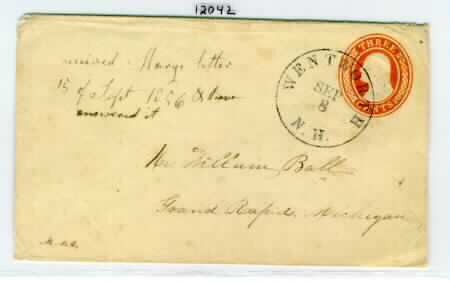 12042
received Marys letter
15 of Sept 1856 &
answered it
THREE
CENTS
WENTWORTH
SEP
8
N.H.
Mr William Ball
Grand Rapids Michigan